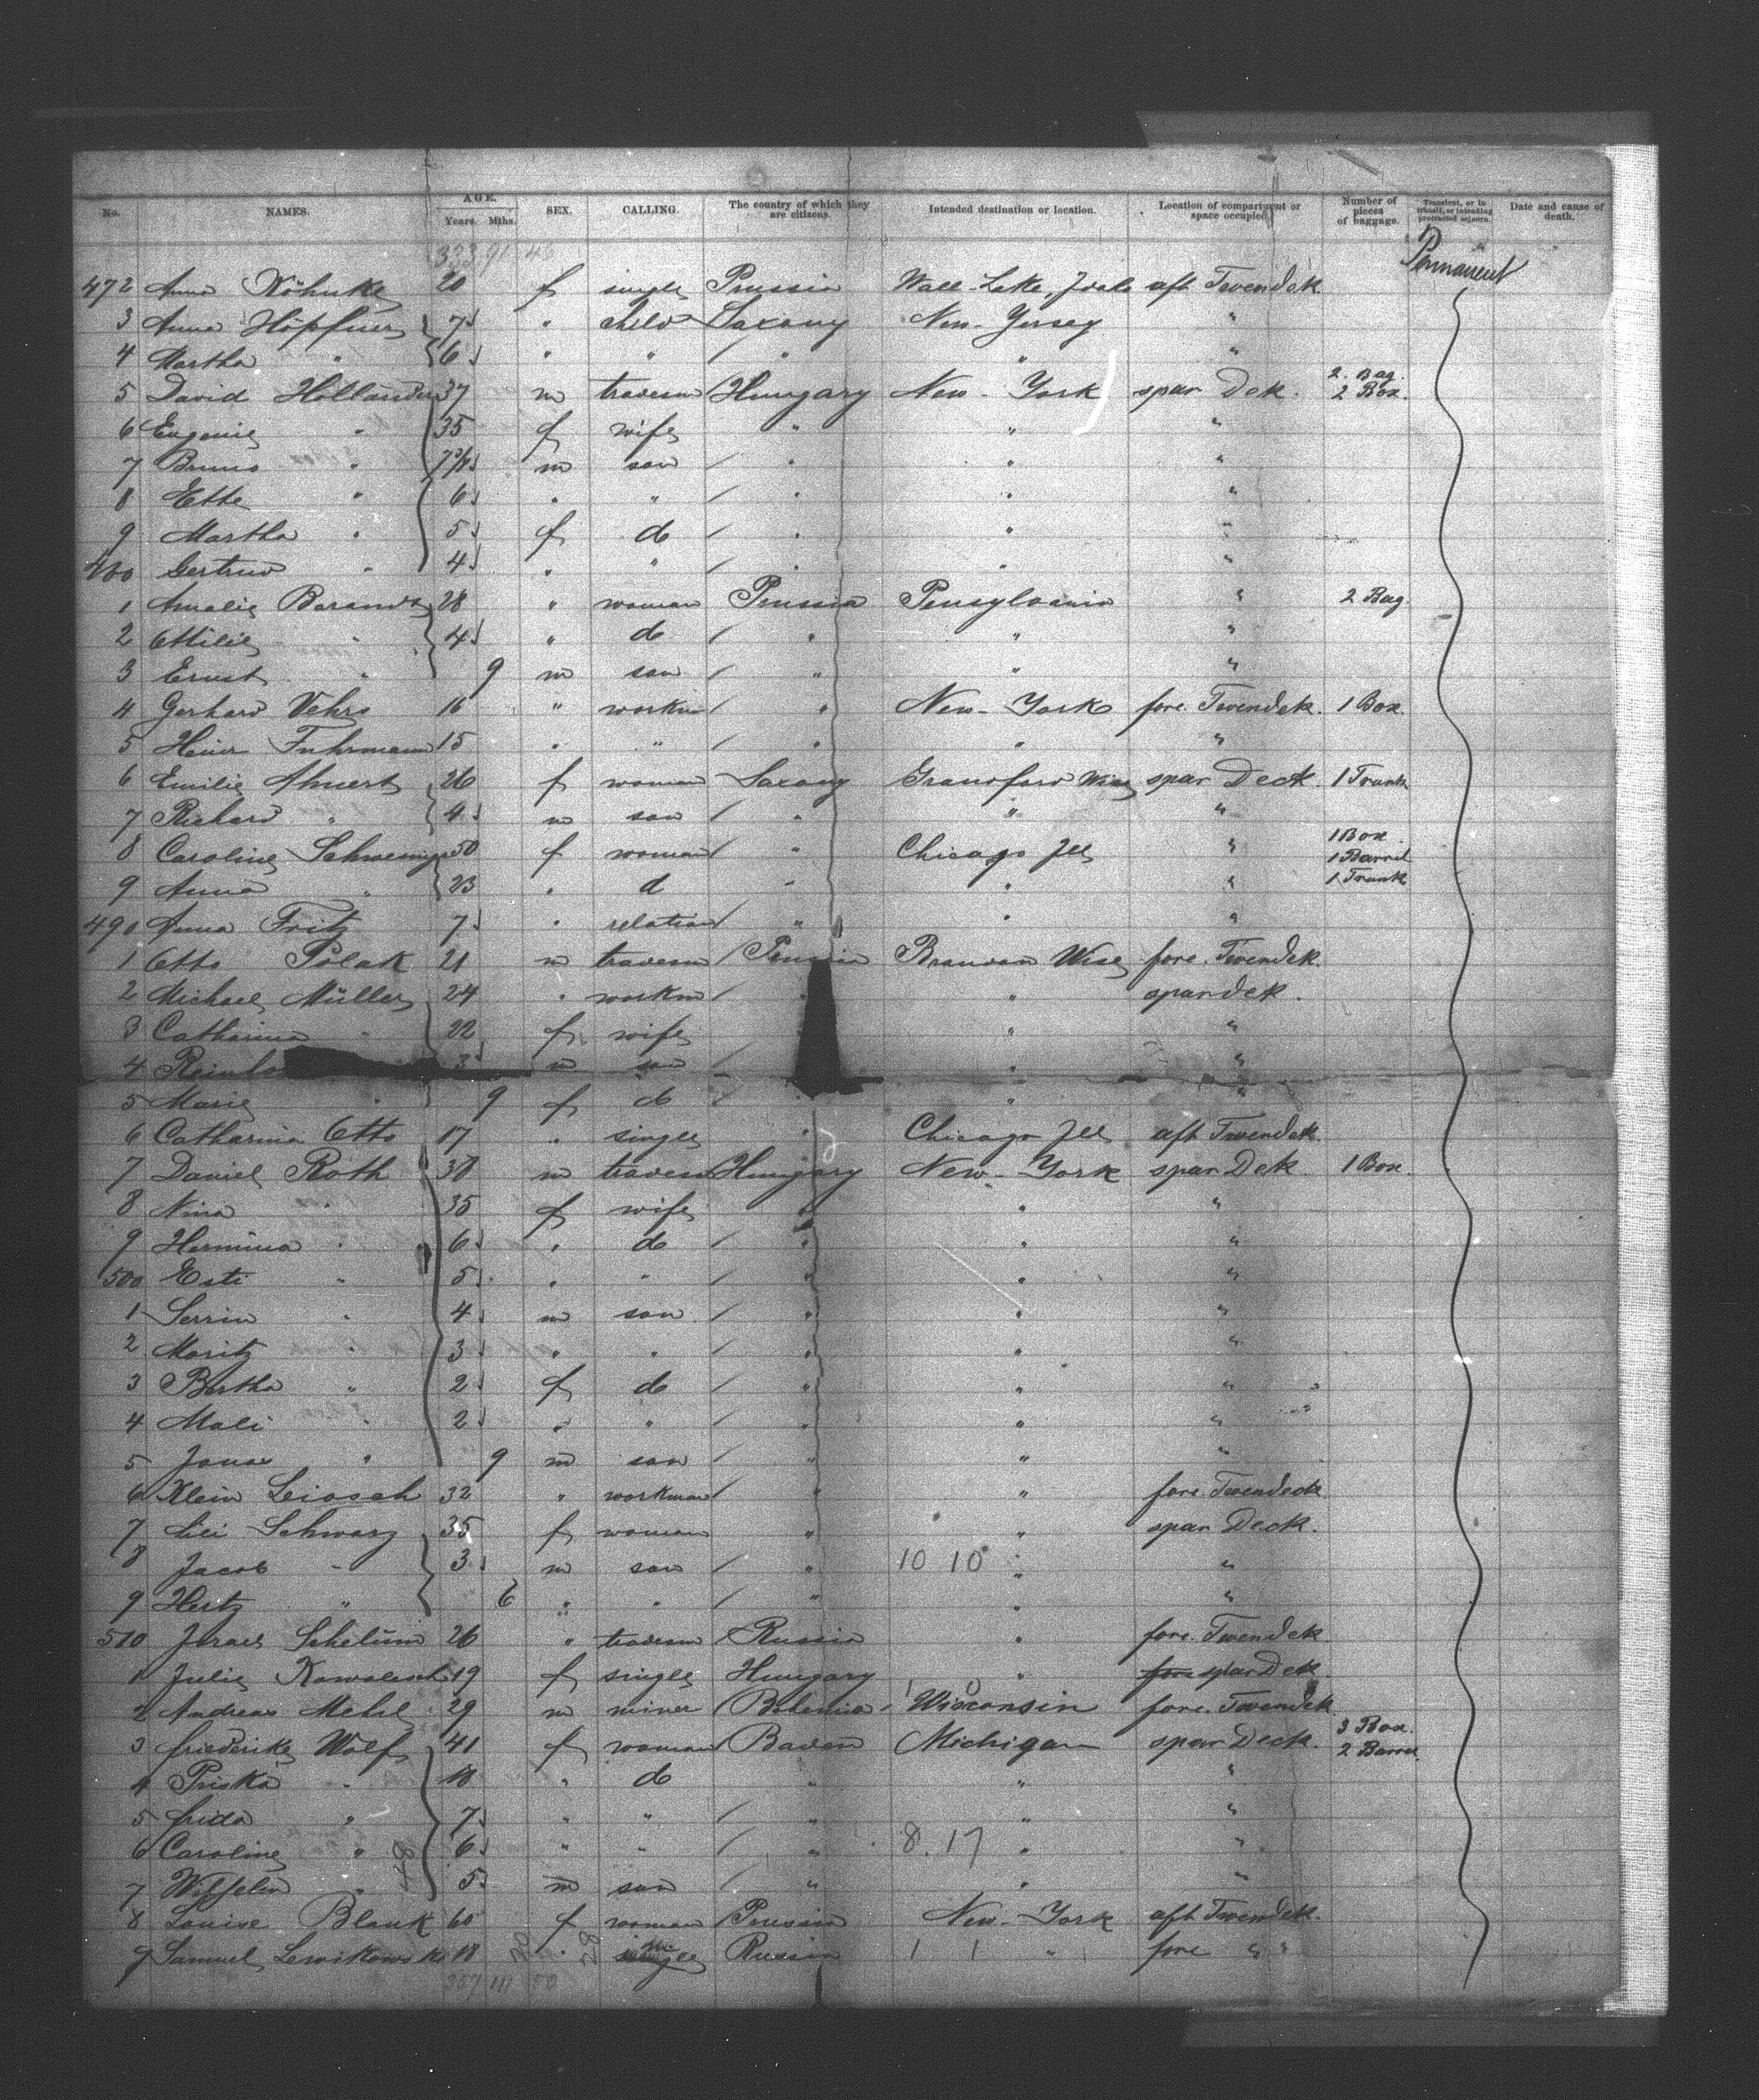 No. NAMES. AGE. Years. Mths. SEX. CALLING. The country of which they are citizens. Intended destination or location. Location of compartment or space occupied. Number of pieces of baggage. Transient, or in transit, or intending protracted sojourn. Date and cause of death.
323 91 46 Permanent
472 Anna Köhnke 20 f single Prussia Wall-Lake, aft Twendek
3 Anna Höpfner 7 " child Saxony New-Yersey "
4 Martha " 6 " " " " "
5 David Holländer 37 m Hungary New-York spar Dek. 2 Bag. 2 Box.
6 Eugenie " 35 f wife " " "
7 Bruno " 7 m son " " "
8 Otto " 6 " " " " "
9 Martha " 5 f do " " "
480 Gertrud " 4 " " " " "
1 Amalie 28 " woman Prussia Pensylvania " 2 Bag.
2 Ottilie " 4 " do " " "
3 Ernst " 9 m son " " "
4 Gerhard Vehrs 16 " workm " New-York fore. Twendek. 1 Box.
5 Heinr Fuhrmann 15 " " " " "
6 Emilie Ahnert 26 f woman Saxony Wisc spar Deck. 1 Trunk
7 Richard " 4 m son " " "
8 Caroline 50 f woman " Chicago Ill " 1 Box 1 Barrel 1 Trunk
9 Anna " 23 " d " " "
490 Anna Fritz 7 " relation " " "
1 Otto Polak 21 m Prussia Wisc fore. Twendek.
2 Michael Müller 24 " workm " " spardek.
3 Catharina " 22 f wife " " "
4 3 m son " "
5 Marie " 9 f do " " "
6 Catharina Otto 17 " single " Chicago Ill aft Twendek.
7 Daniel Roth 38 m Hungary New-York spar Dek 1 Box.
8 Nina " 35 f wife " " "
9 Hermina " 6 " do " " "
500 Esti " 5 " " " " "
1 " 4 m son " " "
2 Moritz " 3 " " " " "
3 Bertha " 2 f do " " "
4 Mali " 2 " " " " "
5 " 9 m son " " "
6 Klein 32 " workman " " fore. Twendeck
7 Schwarz 35 f woman " " spar Deck.
8 Jacob " 3 m son " 10 10 " "
9 Hertz " 6 " " " " "
510 26 " Russia " fore. Twendek
1 Julie 19 f single Hungary " fore spar Dek
2 Andreas Mehl 29 m miner Bohemia Wisconsin fore. Twendek
3 Friederike Wolf 41 f woman Baden Michigan spar Deck. 3 Box. 2 Barrel.
4 Priska " 18 " do " " "
5 Frida " 7 " " " " "
6 Caroline " 6 " " " 8.17 " "
7 Wilhelm " 5 m son " " "
8 Louise Blank 60 f woman Prussia New-York aft Twendek.
9 Samuel 18 " Russia 1 1 " fore " "
357 111 50